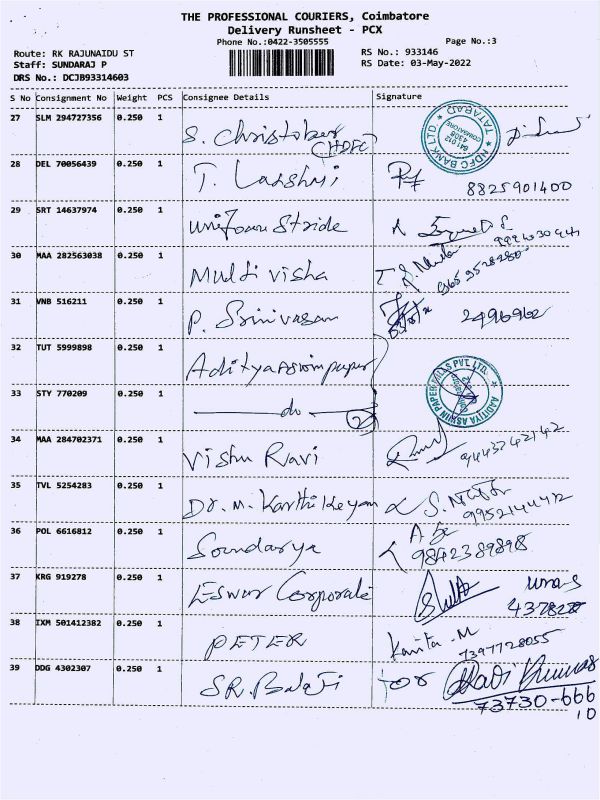 THE PROFESSIONAL COURIERS, Coimbatore
Delivery Runsheet - PCX
Phone No.:0422-3505555 Page No.:3
Route: RK RAJUNAIDU ST RS No.: 933146
Staff: SUNDARAJ P RS Date: 03-May-2022
DRS No.: DCJB93314603
S No Consignment No Weight PCS Consignee Details Signature
27 SLM 294727356 0.250 1 S. Christober (HDFC) HDFC BANK LTD. TATABAD COIMBATORE 641 012
28 DEL 70056439 0.250 1 T. Lakshmi 8825901400
29 SRT 14637974 0.250 1 Uniform Stride
30 MAA 282563038 0.250 1 Multi visha
31 VNB 516211 0.250 1 P. Srinivasan 2496962
32 TUT 5999898 0.250 1 Aditya aswin paper
33 STY 770209 0.250 1 — do — 2 AADITYA ASHWIN PAPER MILLS PVT. LTD.
34 MAA 284702371 0.250 1 Vishnu Ravi 9443742142
35 TVL 5254283 0.250 1 Dr. M. Karthikeyan 9952144412
36 POL 6616812 0.250 1 Soundarya 9842389898
37 KRG 919278 0.250 1 Eswar Corporate
38 IXM 501412382 0.250 1 PETER Kavita .M 7397728055
39 DDG 4302307 0.250 1 SR. Balaji for Ravi Kumar
73730-666
10